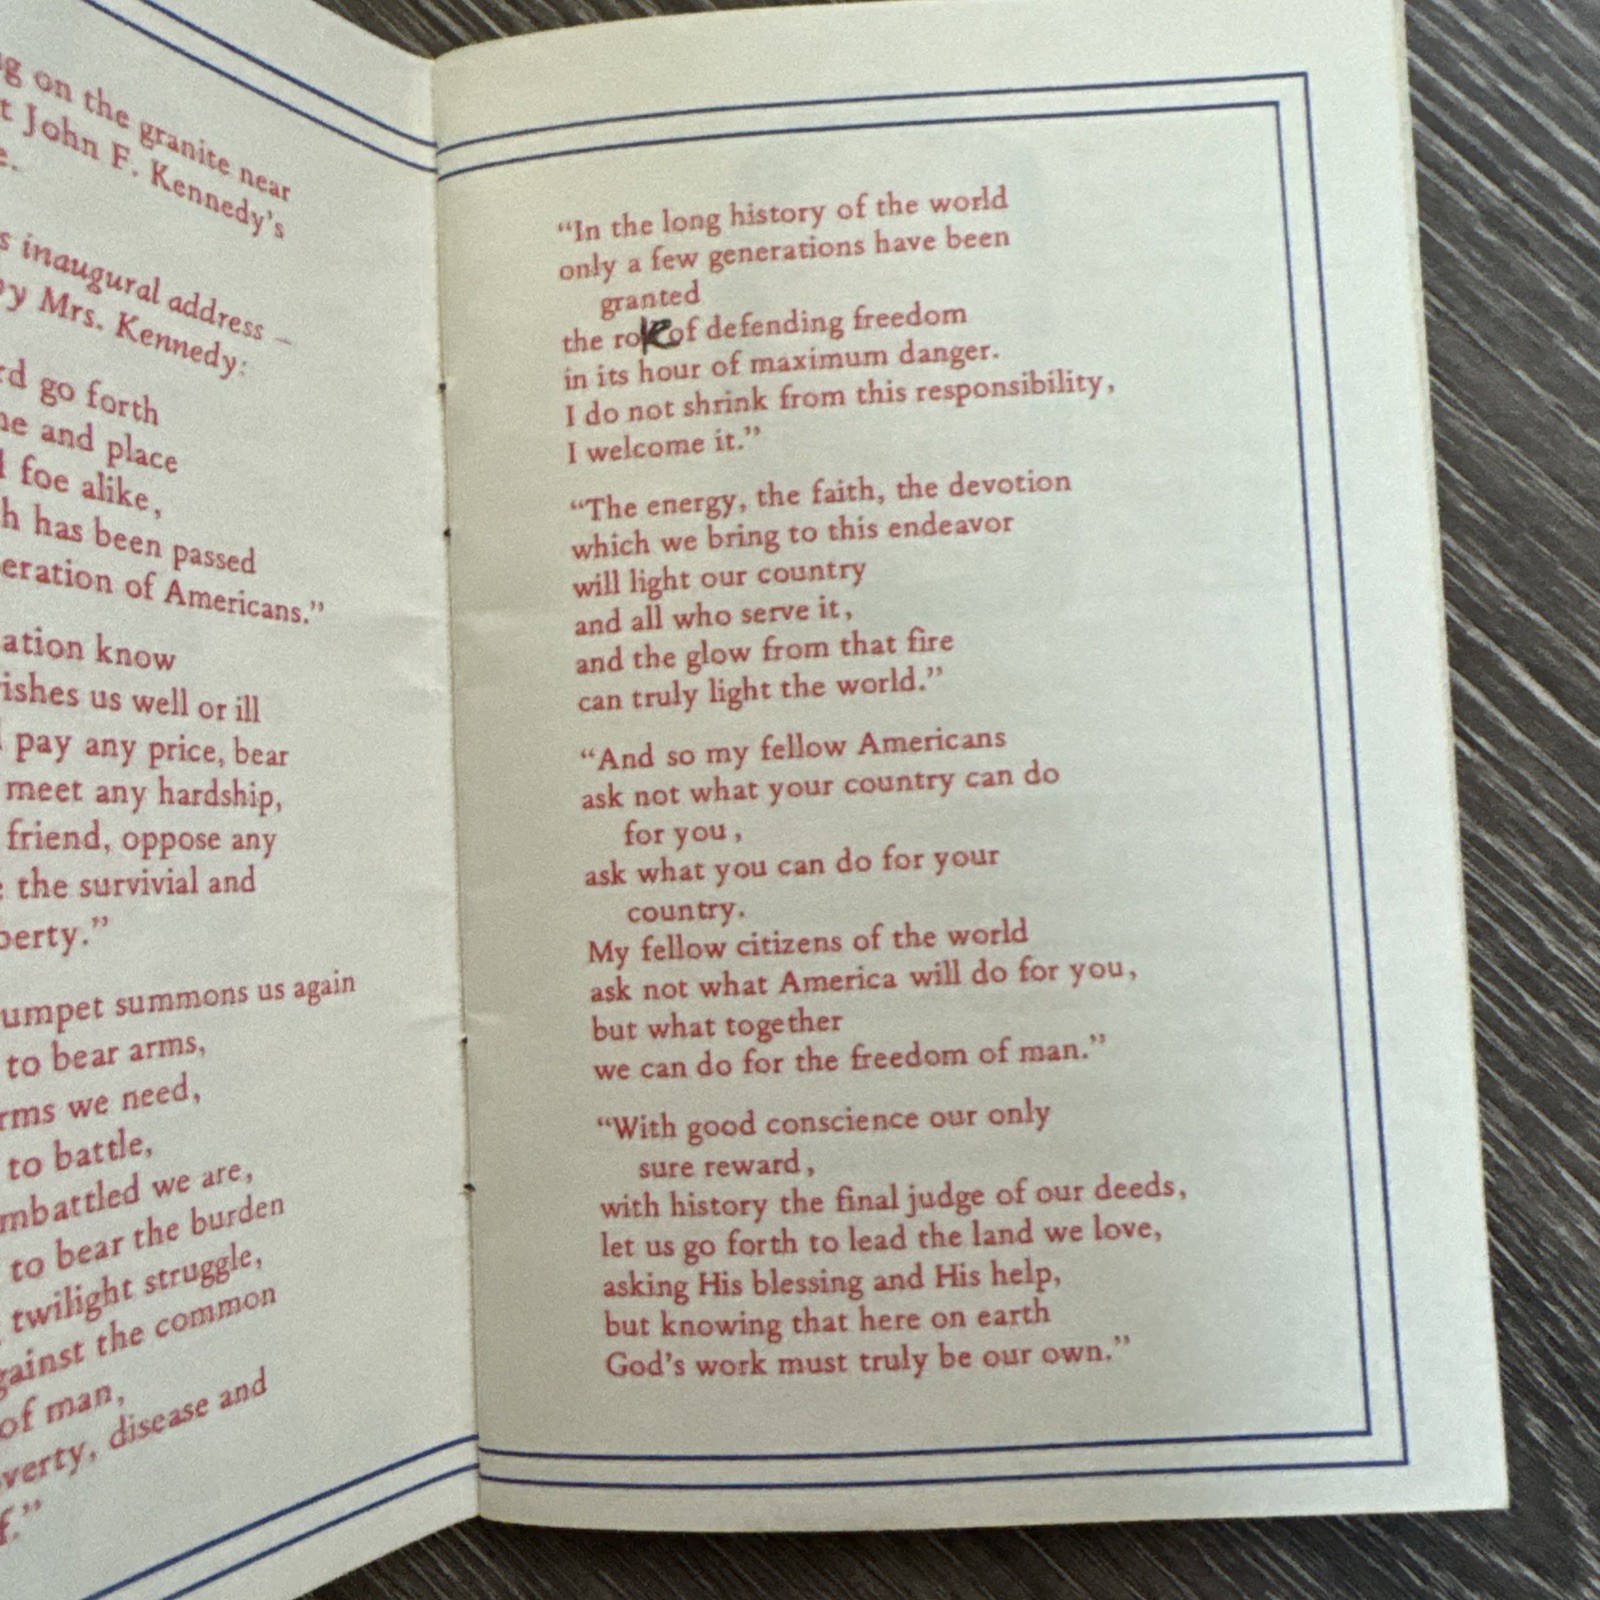 on the granite near
John F. Kennedy's
inaugural address –
by Mrs. Kennedy:
go forth
and place
foe alike,
has been passed
of Americans."
know
us well or ill
pay any price, bear
meet any hardship,
friend, oppose any
the survivial and
summons us again
to bear arms,
we need,
to battle,
we are,
to bear the burden
twilight struggle,
the common
of man,
disease and
"In the long history of the world
only a few generations have been
granted
the role of defending freedom
in its hour of maximum danger.
I do not shrink from this responsibility,
I welcome it."
"The energy, the faith, the devotion
which we bring to this endeavor
will light our country
and all who serve it,
and the glow from that fire
can truly light the world."
"And so my fellow Americans
ask not what your country can do
for you,
ask what you can do for your
country.
My fellow citizens of the world
ask not what America will do for you,
but what together
we can do for the freedom of man."
"With good conscience our only
sure reward,
with history the final judge of our deeds,
let us go forth to lead the land we love,
asking His blessing and His help,
but knowing that here on earth
God's work must truly be our own."